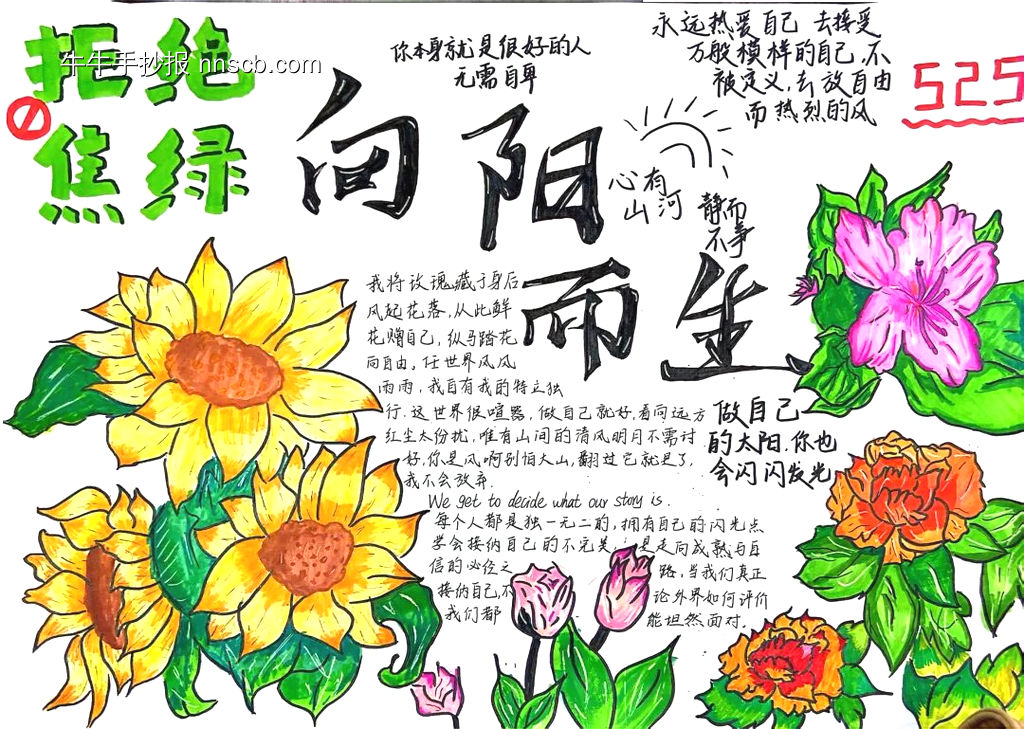 拒绝
牛牛手抄报 nnscb.com
焦绿
你本身就是很好的人
无需自卑
永远热爱自己 去接受
万般模样的自己,不
被定义,去放自由
而热烈的风
525
向阳
心有
山河
静而
不争
而生
我将玫瑰藏于身后
风起花落,从此鲜
花赠自己,纵马踏花
向自由,任世界风风
雨雨,我自有我的特立独
行.这世界很喧嚣,做自己就好,看向远方
红尘太纷扰,唯有山间的清风明月不需讨
好,你是风啊别怕大山,翻过它就是了,
我不会放弃.
We get to decide what our story is.
每个人都是独一无二的,拥有自己的闪光点
学会接纳自己的不完美,是走向成熟与自
信的必经之路,当我们真正
接纳自己,不论外界如何评价
我们都能坦然面对.
做自己
的太阳.你也
会闪闪发光